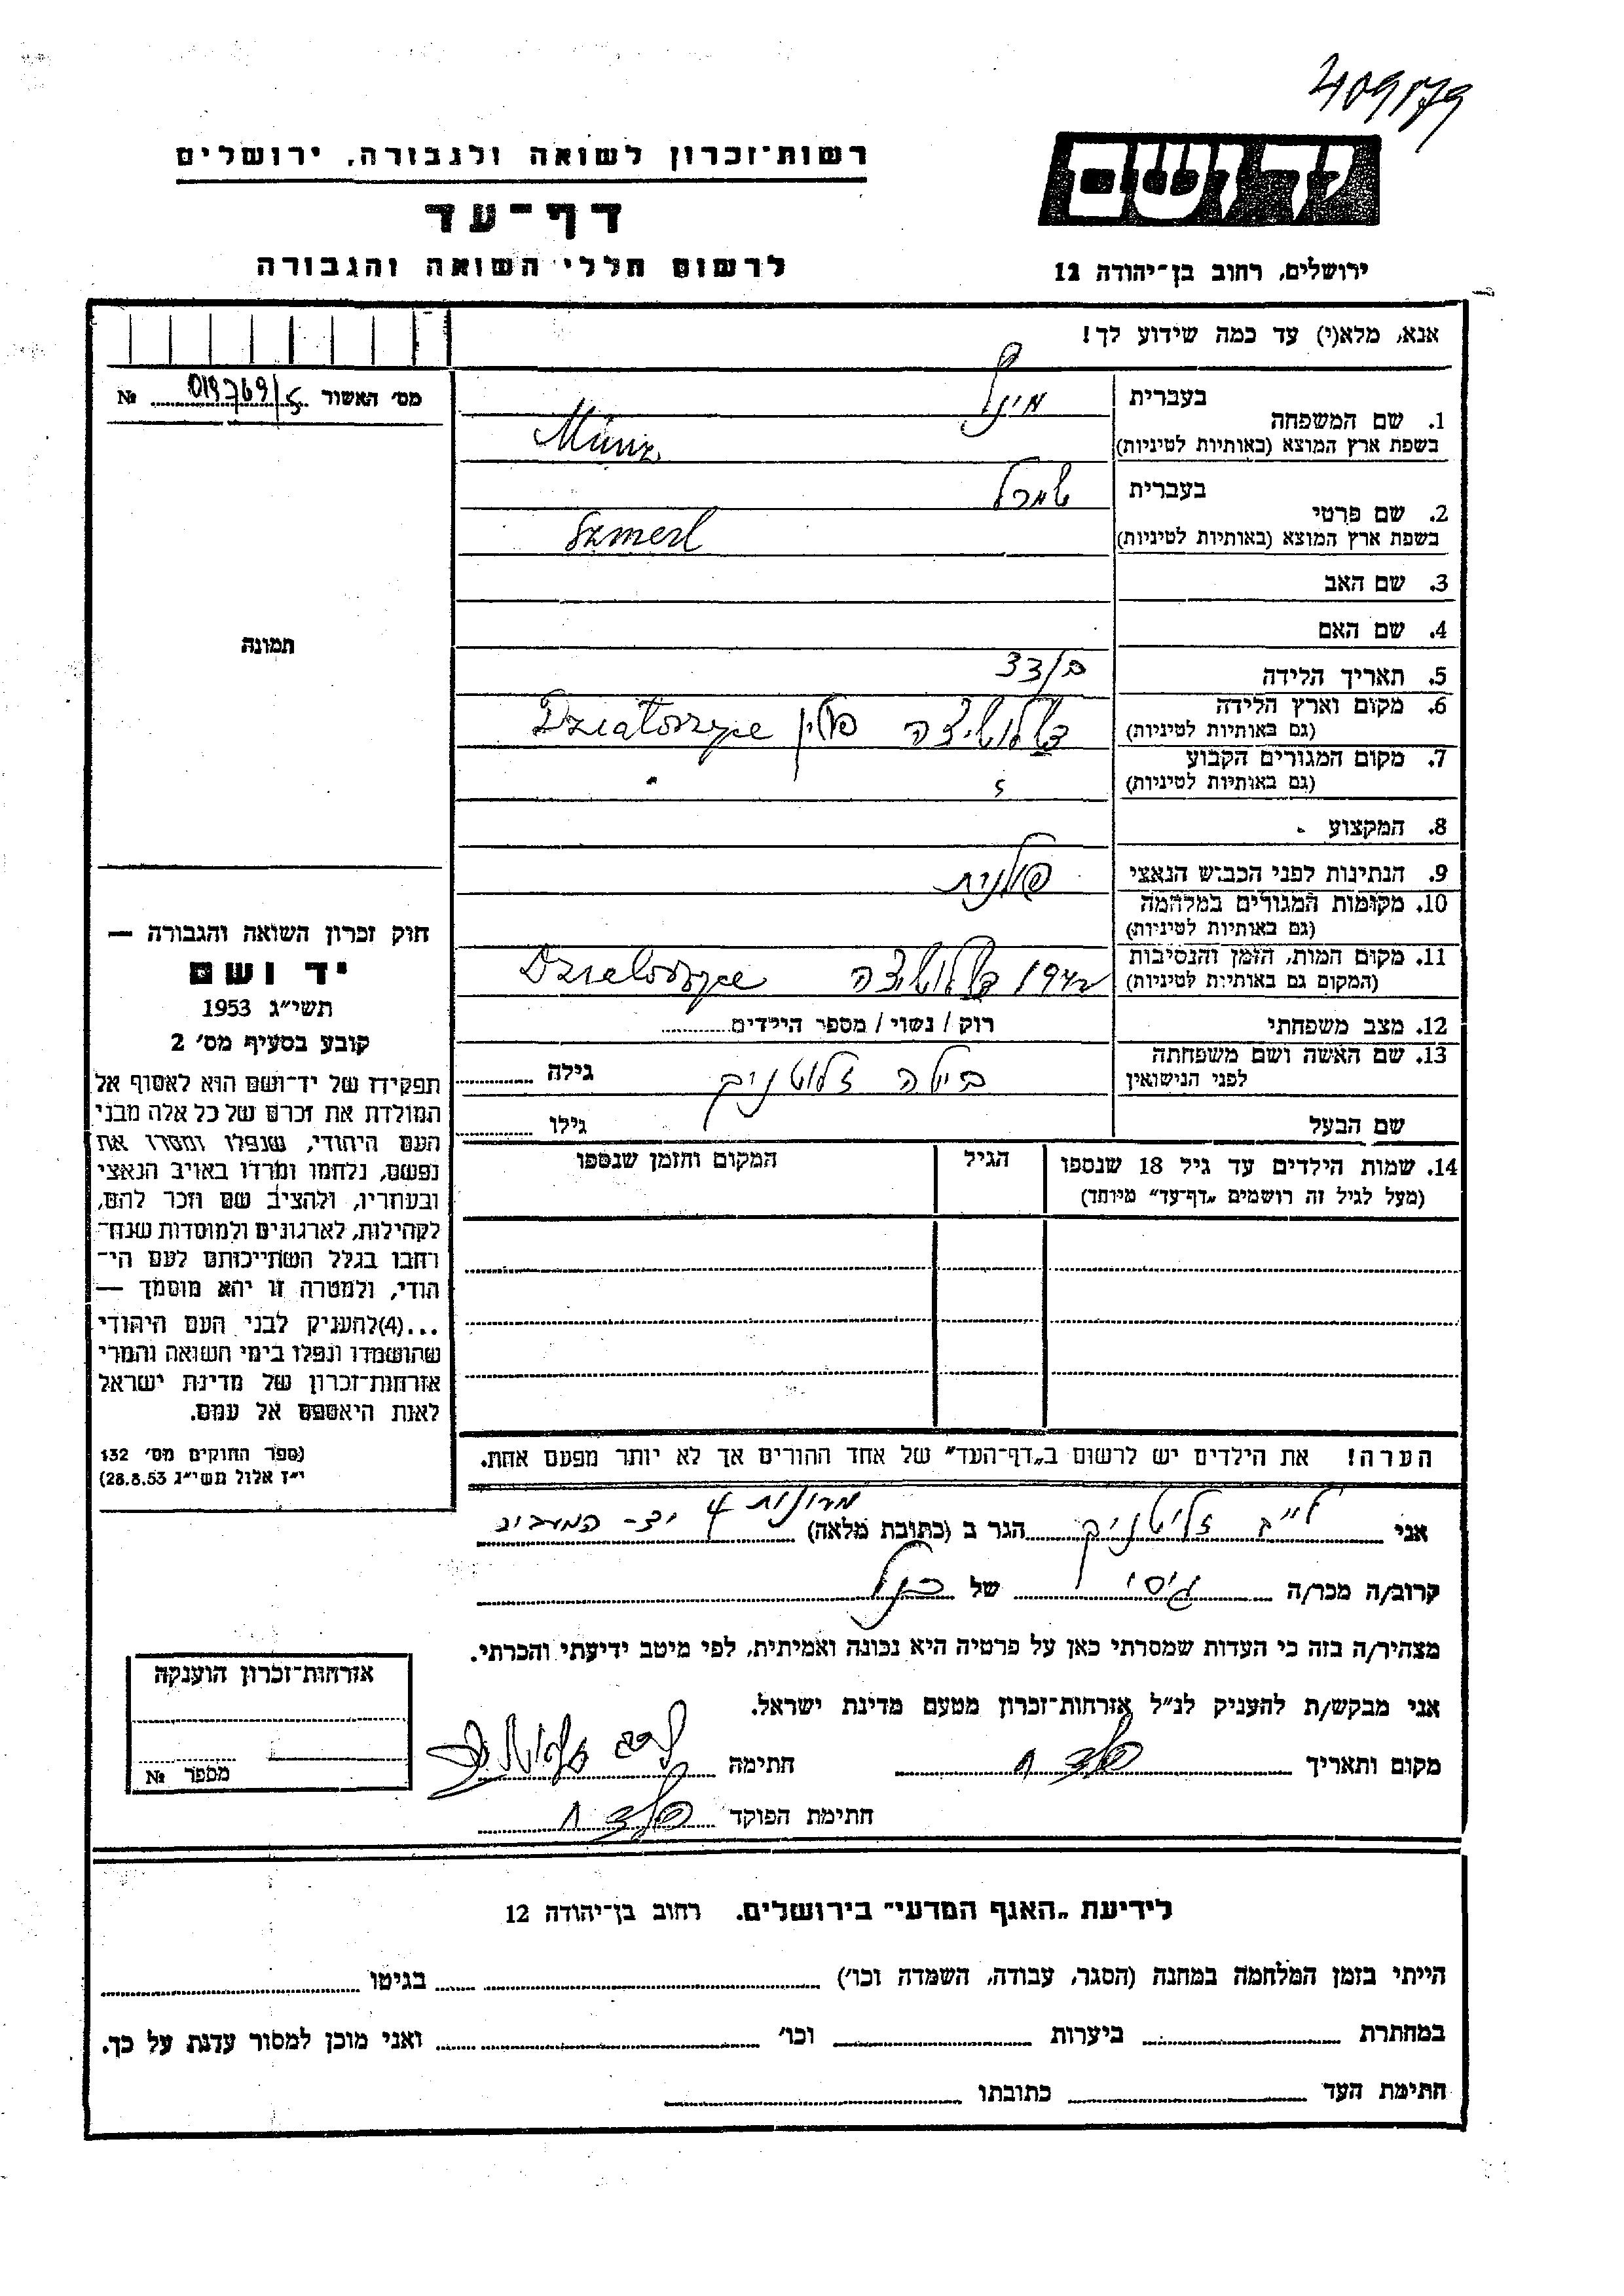 409179
רשות־זכרון לשואה ולגבורה, ירושלים
דף־עד
לרשום חללי השואה והגבורה
יד ושם
ירושלים, רחוב בן־יהודה 12
אנא, מלא(י) עד כמה שידוע לך!
מס׳ האשור 019769/5 №
תמונה
1. שם המשפחה
בעברית מינץ
בשפת ארץ המוצא (באותיות לטיניות) Münz
2. שם פרטי
בעברית שמרל
בשפת ארץ המוצא (באותיות לטיניות) Szmerl
3. שם האב
4. שם האם
5. תאריך הלידה 33/
6. מקום וארץ הלידה
(גם באותיות לטיניות) פולין Dzialoszyce
7. מקום המגורים הקבוע
(גם באותיות לטיניות)
8. המקצוע
9. הנתינות לפני הכבוש הנאצי פולנית
10. מקומות המגורים במלחמה
(גם באותיות לטיניות)
11. מקום המות, הזמן והנסיבות
(המקום גם באותיות לטיניות) Dzialoszyce
12. מצב משפחתי רוק / נשוי / מספר הילדים
13. שם האשה ושם משפחתה
לפני הנישואין בילה זלוטניק גילה
שם הבעל גילו
14. שמות הילדים עד גיל 18 שנספו
(מעל לגיל זה רושמים „דף־עד״ מיוחד)
הגיל
המקום והזמן שנספו
הערה! את הילדים יש לרשום ב„דף־העד״ של אחד ההורים אך לא יותר מפעם אחת.
חוק זכרון השואה והגבורה —
יד ושם
תשי״ג 1953
קובע בסעיף מס׳ 2
תפקידו של יד־ושם הוא לאסוף אל
המולדת את זכרם של כל אלה מבני
העם היהודי, שנפלו ומסרו את
נפשם, נלחמו ומרדו באויב הנאצי
ובעוזריו, ולהציב שם וזכר להם,
לקהילות, לארגונים ולמוסדות שנח־
רחבו בגלל השתייכותם לעם הי־
הודי, ולמטרה זו יהא מוסמך —
...(4)להעניק לבני העם היהודי
שהושמדו ונפלו בימי השואה והמרי
אזרחות־זכרון של מדינת ישראל
לאות היאספם אל עמם.
(ספר החוקים מס׳ 132
י״ז אלול תשי״ג 28.8.53)
אני זלוטניק הגר ב (כתובת מלאה) 4
קרוב/ה מכר/ה גיסי של הנ״ל
מצהיר/ה בזה כי העדות שמסרתי כאן על פרטיה היא נכונה ואמיתית, לפי מיטב ידיעתי והכרתי.
אני מבקש/ת להעניק לנ״ל אזרחות־זכרון מטעם מדינת ישראל.
מקום ותאריך חתימה
חתימת הפוקד
אזרחות־זכרון הוענקה
מספר №
לידיעת „האגף המדעי״ בירושלים. רחוב בן־יהודה 12
הייתי בזמן המלחמה במחנה (הסגר, עבודה, השמדה וכו׳) בגיטו
במחתרת ביערות וכו׳ ואני מוכן למסור עדות על כך.
חתימת העד כתובתו